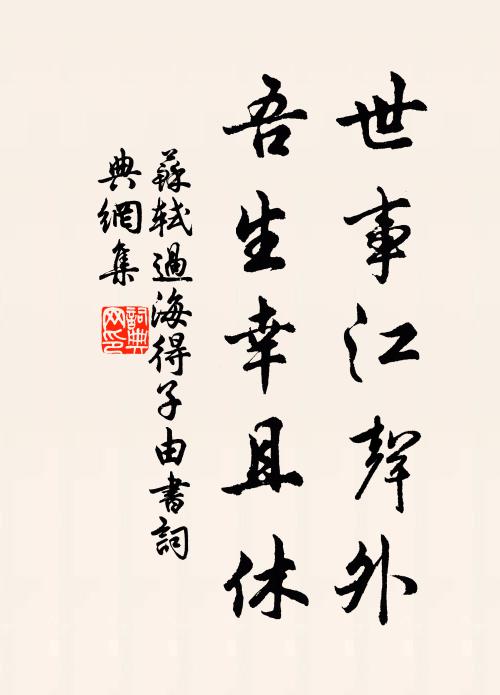 世事江聲外
吾生幸且休
蘇軾過海得子由書詞
典網集
詞典
网印